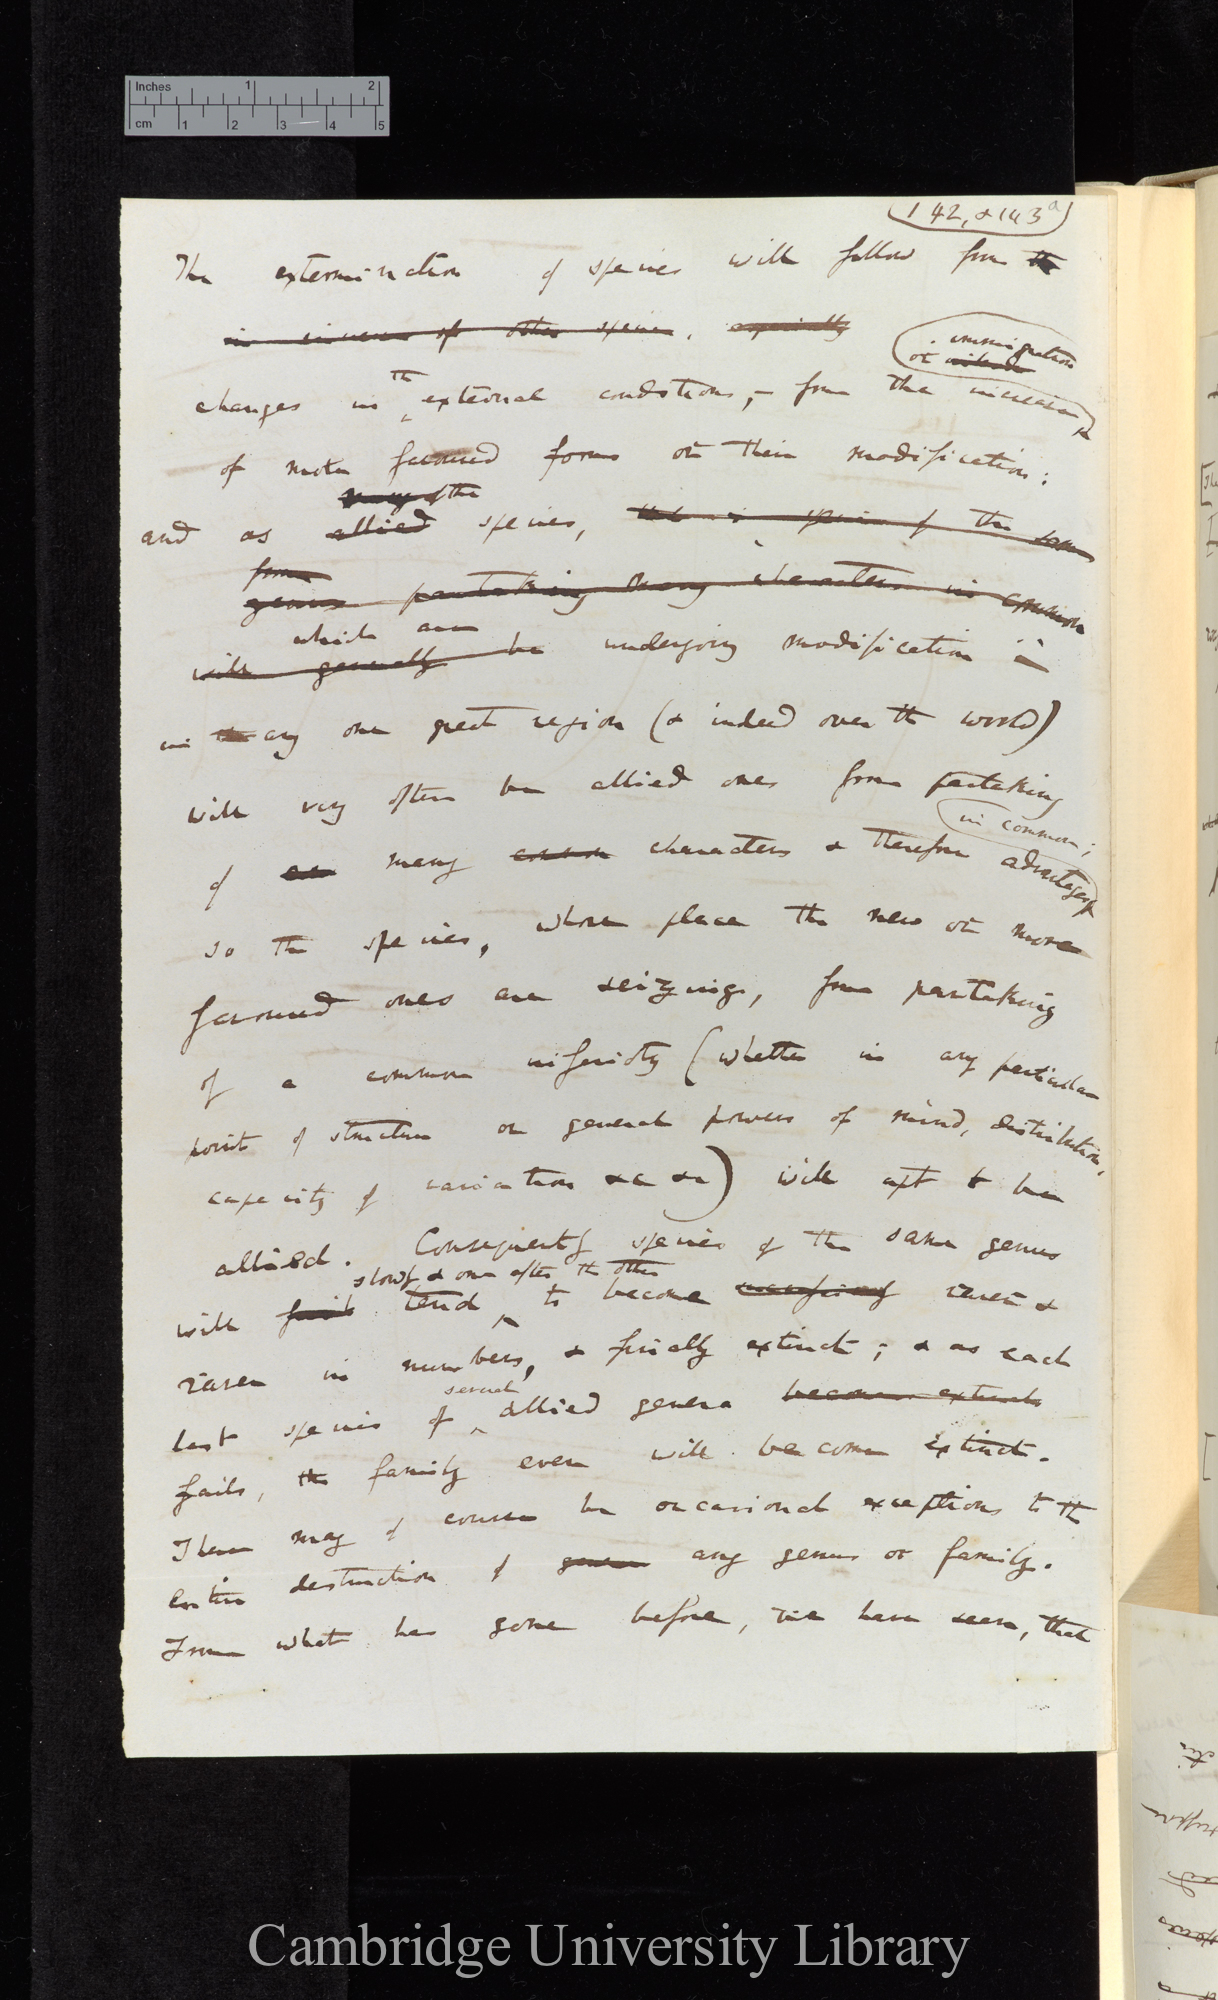 Inches 1 2
cm 1 2 3 4 5
142, & 143 a
The extermination of species will follow from the
in increase of other species, especially
or immigration
changes in the external conditions, – from the increase
of more favoured forms or their modification:
many of the
and as allied species, that is species of the same
from
genus partaking many characters in common
which are
will generally be undergoing modification in
in the any one great region (& indeed over the world)
will very often be allied ones from partaking
in common;
of many common characters & therefore advantages
so the species, whose place the new or more
favoured ones are seizing, from partaking
of a common inferiority (whether in any particular
point of structure or general powers of mind, distribution,
capacity of variation &c &c) will apt to be
allied. Consequently species of the same genus
slowly & one after the other
will tend to become rarer &
rarer in numbers, & finally extinct; & as each
several
last species of allied genera become extinct
fails, the family even will become extinct.
There may of course be occasional exceptions to the
entire destruction of genera any genus or family.
From what has gone before, we have seen, that
Cambridge University Library